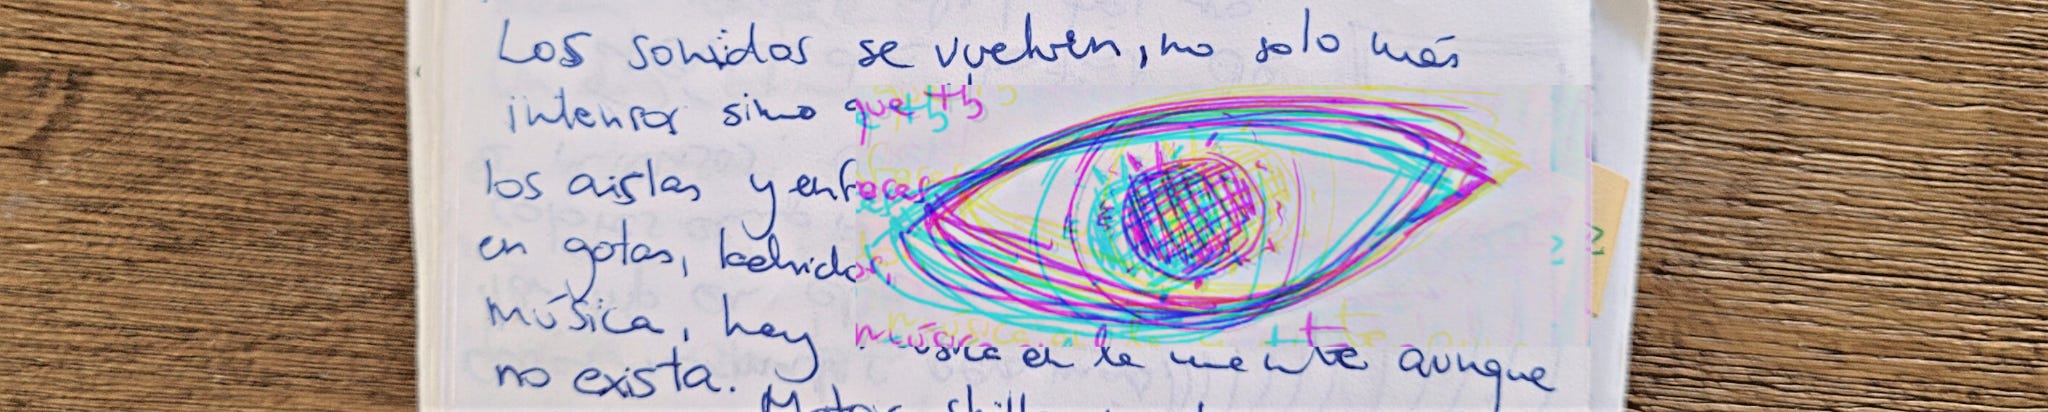 Los sonidos se vuelven, no solo más
intensos sino que
los aislas y enfocas
en gotas, bebidas,
música, hay música en la mente aunque
no exista.
Motor skills